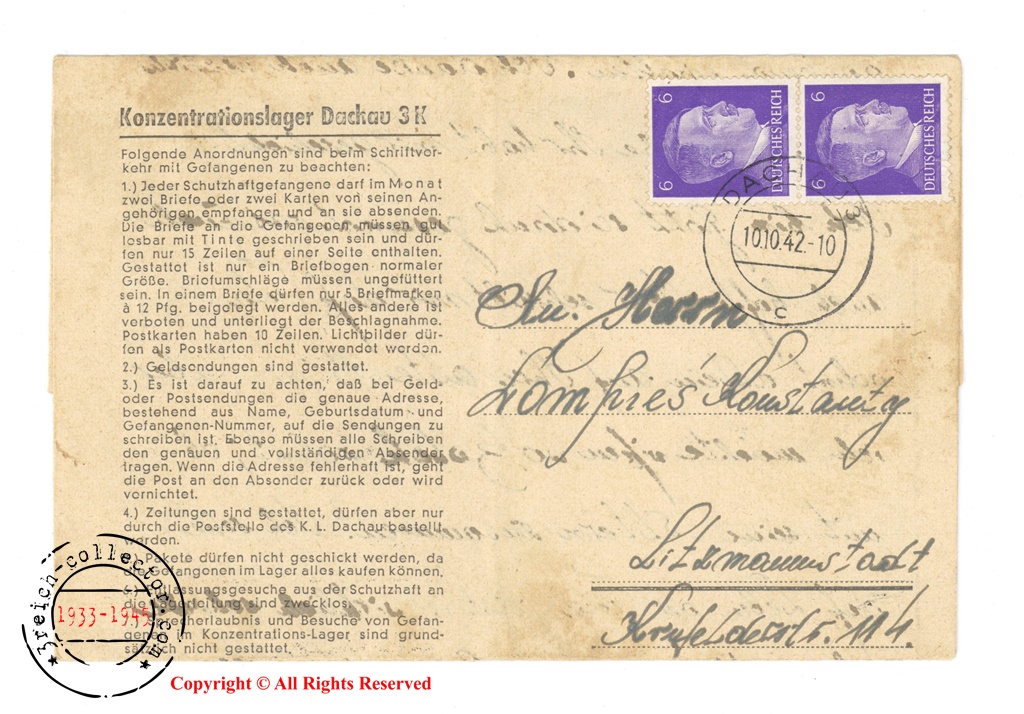 Konzentrationslager Dachau 3 K
Folgende Anordnungen sind beim Schriftver-
kehr mit Gefangenen zu beachten:
1.) Jeder Schutzhaftgefangene darf im Monat
zwei Briefe oder zwei Karten von seinen An-
gehörigen empfangen und an sie absenden.
Die Briefe an die Gefangenen müssen gut
lesbar mit Tinte geschrieben sein und dür-
fen nur 15 Zeilen auf einer Seite enthalten.
Gestattet ist nur ein Briefbogen normaler
Größe. Briefumschläge müssen ungefüttert
sein. In einem Briefe dürfen nur 5 Briefmarken
à 12 Pfg. beigelegt werden. Alles andere ist
verboten und unterliegt der Beschlagnahme.
Postkarten haben 10 Zeilen. Lichtbilder dür-
fen als Postkarten nicht verwendet werden.
2.) Geldsendungen sind gestattet.
3.) Es ist darauf zu achten, daß bei Geld-
oder Postsendungen die genaue Adresse,
bestehend aus Name, Geburtsdatum und
Gefangenen-Nummer, auf die Sendungen zu
schreiben ist. Ebenso müssen alle Schreiben
den genauen und vollständigen Absender
tragen. Wenn die Adresse fehlerhaft ist, geht
die Post an den Absender zurück oder wird
vernichtet.
4.) Zeitungen sind gestattet, dürfen aber nur
durch die Poststelle des K. L. Dachau bestellt
werden.
Pakete dürfen nicht geschickt werden, da
die Gefangenen im Lager alles kaufen können.
Entlassungsgesuche aus der Schutzhaft an
die Lagerleitung sind zwecklos.
Sprecherlaubnis und Besuche von Gefan-
genen im Konzentrations-Lager sind grund-
sätzlich nicht gestattet.
6 DEUTSCHES REICH 6
6 DEUTSCHES REICH 6
DACHAU 3
10.10.42.-10
c
An: Herrn
Konstanty
Litzmannstadt
114
3reich-collector.com
1933-1945
Copyright © All Rights Reserved